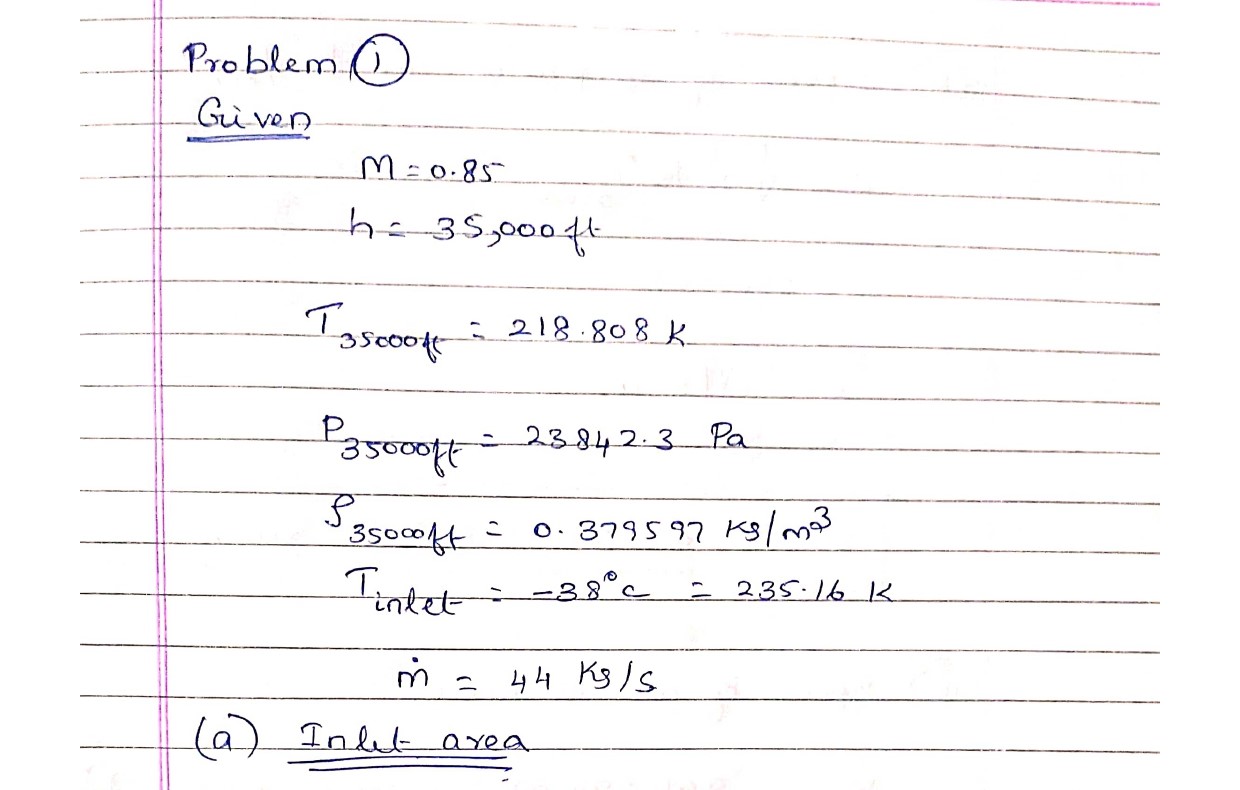 Problem ①
Given
M = 0.85
h = 35,000 ft
T35000ft = 218.808 K
P35000ft = 23842.3 Pa
ρ35000ft = 0.379597 Kg/m3
Tinlet = -38°c = 235.16 K
ṁ = 44 Kg/s
(a) Inlet area